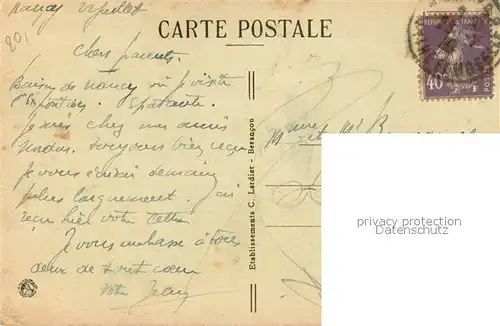 Nancy 27 juillet
20,
CARTE POSTALE
Chers parents.
Baisers de Nancy où je visite
l'Exposition. Epatante.
Je suis chez mes amis
toujours bien reçu
Je vous écrirai demain
plus longuement. J'ai
reçu hier votre lettre
Je vous embrasse à tous
deux de tout cœur
votre Jean
Etablissements C. Lardier - Besançon
REPUBLIQUE FRANÇAISE
40c
POSTES
Mme et Mr
privacy protection
Datenschutz